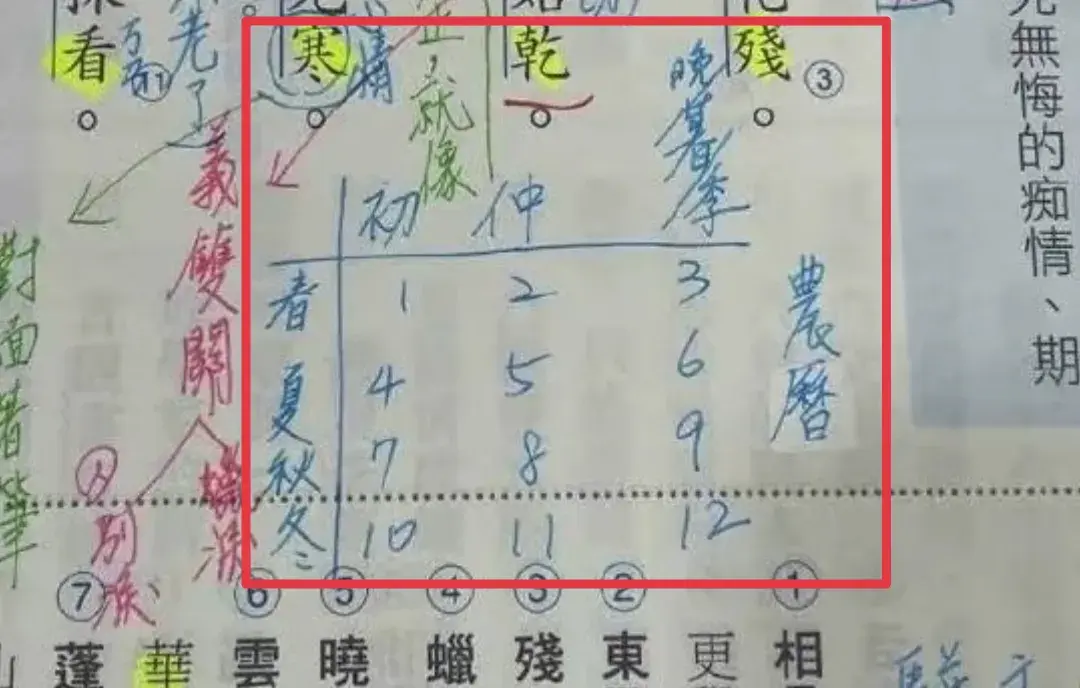 無悔的痴情、期
殘。
③
乾。
寒。
看。
晚暮季
正,就像
情
老了
義雙關
人
蠟淚
別淚
對面著筆
農曆
初 仲
春 1 2 3
夏 4 5 6
秋 7 8 9
冬 10 11 12
①相
更
②東
③殘
④蠟
⑤曉
⑥雲
華
⑦蓬